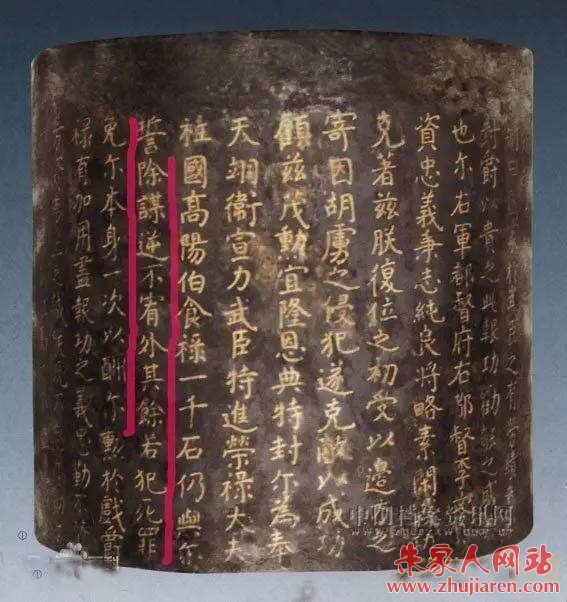 封爵以貴之此報功勸能之
也尔右軍都督府右都督李
資忠義秉志純良將略素閑
克著兹朕復位之初受以邊之
寄因胡虜之侵犯遂克敵以成功
顧兹茂勳宜隆恩典特封尔為奉
天翊衛宣力武臣特進榮禄大夫
柱國高陽伯食禄一千石仍與尔
誓除謀逆不宥外其餘若犯死罪
免尔本身一次以酬尔勲於戲爵
禄有加用盡報功之義忠勤不
中国档案资讯网
朱家人网站
www.zhujiaren.com
①
①